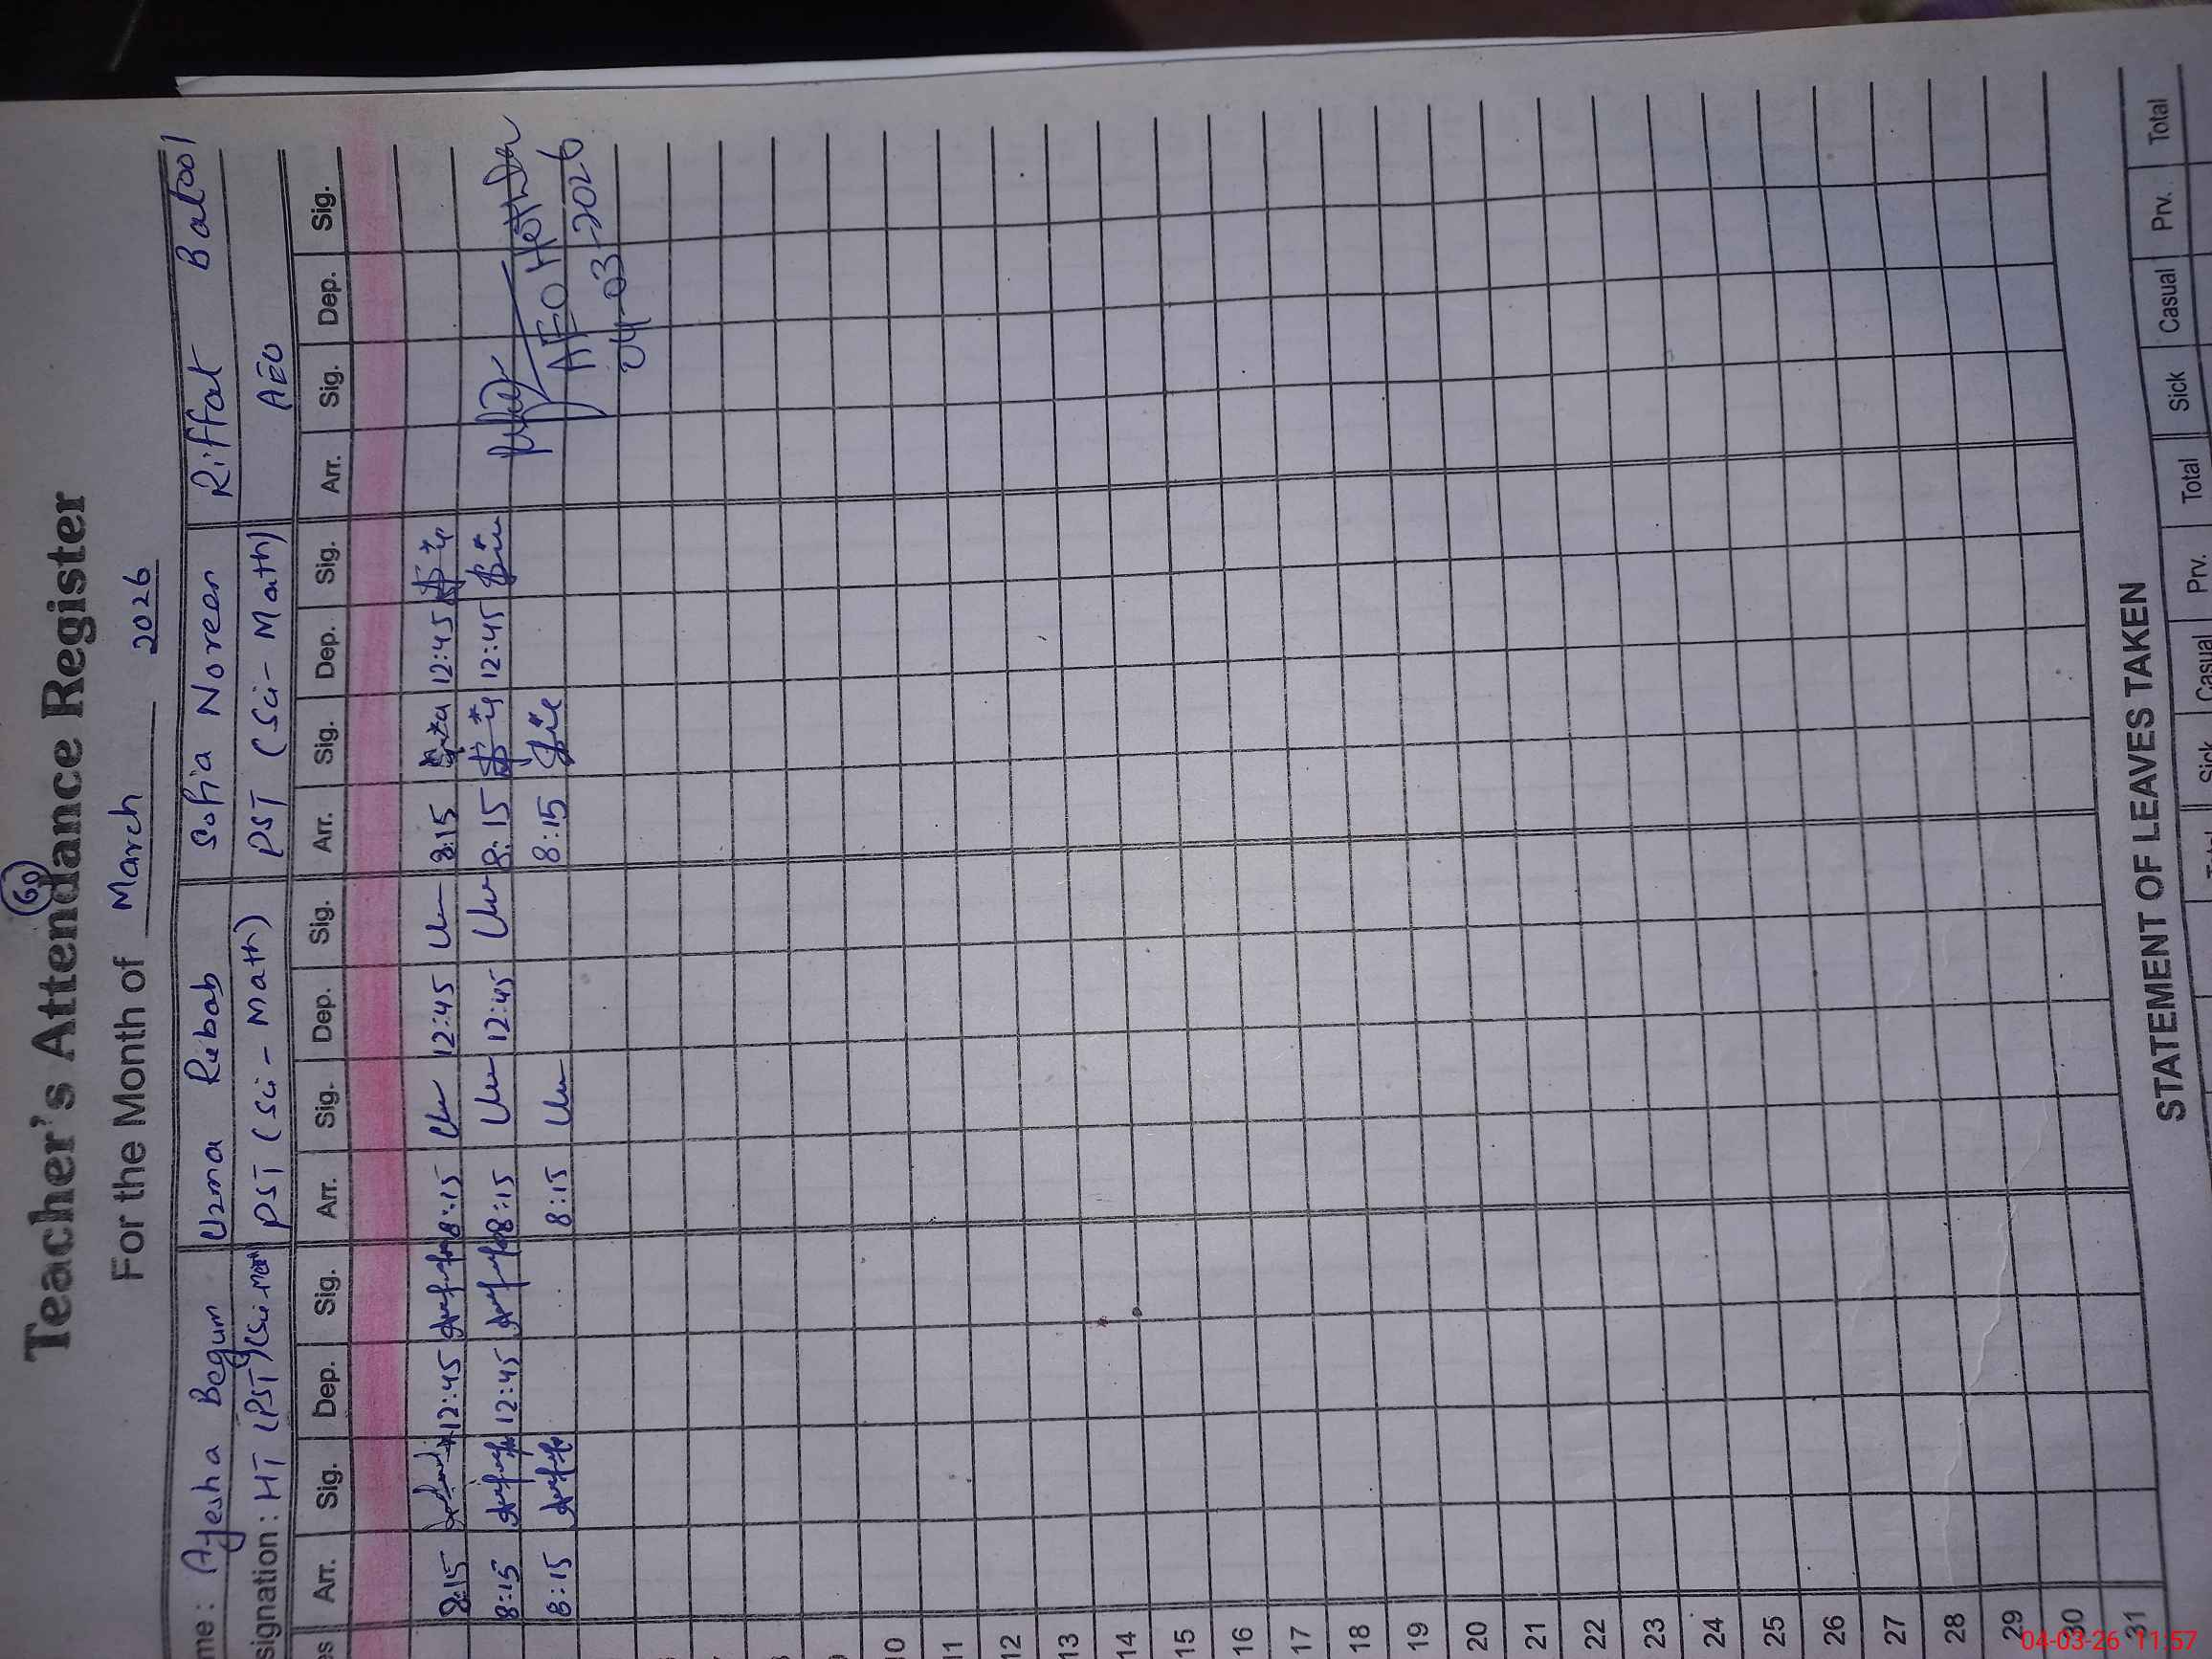 60
Teacher's Attendance Register
For the Month of March 2026
me: Ayesha Begum Uzma Rubab Sofia Noreen Riffat Batool
signation: HT (PST)(Sci-Math) PST (Sci-Math) PST (Sci-Math) AEO
es Arr. Sig. Dep. Sig. Arr. Sig. Dep. Sig. Arr. Sig. Dep. Sig. Arr. Sig. Dep. Sig.
8:15 12:45 8:15 12:45 8:15 12:45
8:15 12:45 8:15 12:45 8:15 12:45
8:15 8:15 8:15
AEO
04-03-2026
10
11
12
13
14
15
16
17
18
19
20
21
22
23
24
25
26
27
28
29
30
31
STATEMENT OF LEAVES TAKEN
Sick Casual Prv. Total Sick Casual Prv. Total
04-03-26 11:57